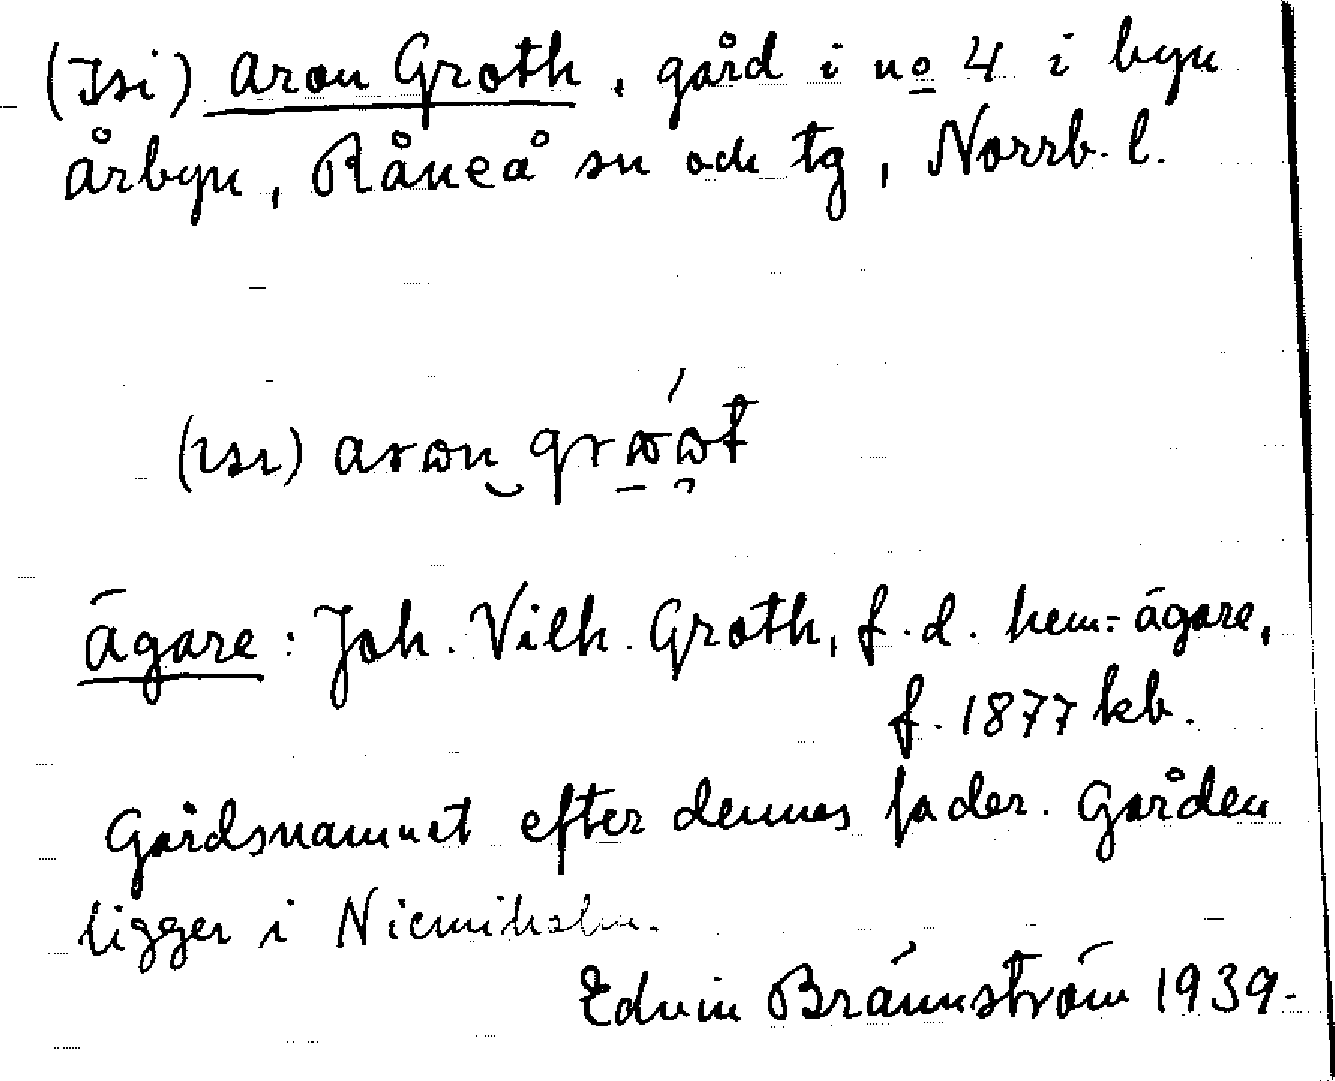 (Isi) Aron Groth, gård i no 4 i byn
Årbyn, Råneå sn och tg, Norrb. l.
(ısı) arɷn grɷ́ɷt
Ägare: Joh. Vilh. Groth, f.d. hem.=ägare,
f. 1877 kb.
Gårdsnamnet efter dennes fader. Gården
ligger i Niemiholm.
Edvin Brännström 1939.